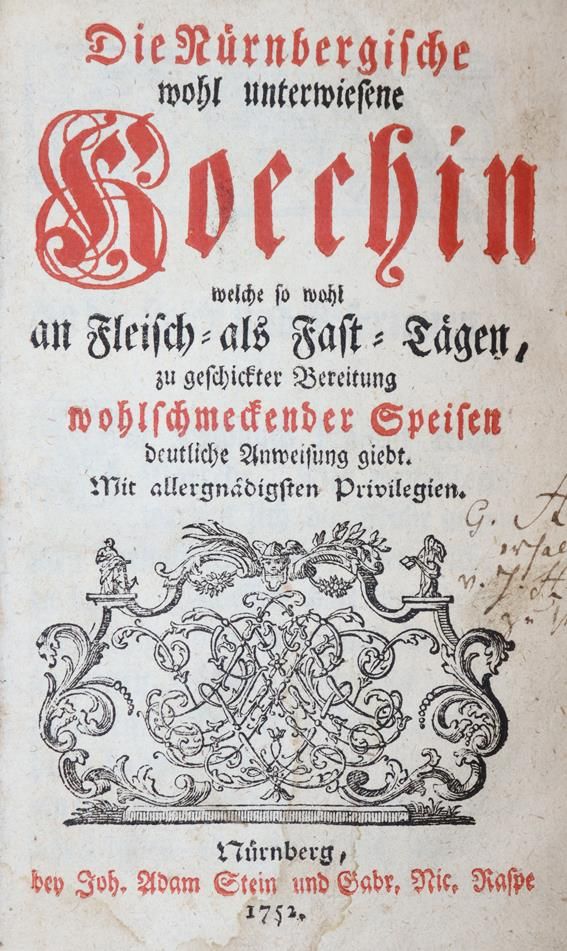 Die Nürnbergische
wohl unterwiesene
Koechin
welche so wohl
an Fleisch- als Fast-Tägen,
zu geschickter Bereitung
wohlschmeckender Speisen
deutliche Anweisung giebt.
Mit allergnädigsten Privilegien.
G.
v.
Nürnberg,
bey Joh. Adam Stein und Gabr. Nic. Raspe
1752.